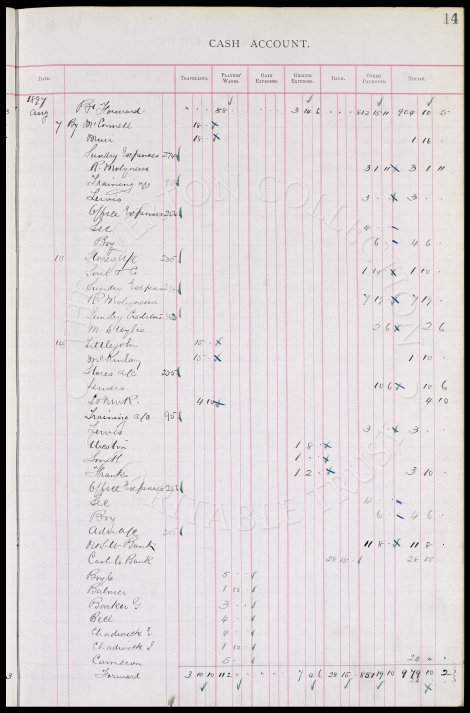 14
CASH ACCOUNT.
DATE. TRAVELLING. PLAYERS' WAGES. GATE EXPENSES. GROUND EXPENSES. BANK. OTHER PAYMENTS. TOTALS.
1897
Aug Bt Forward 88 3 14 6 812 15 11 904 10 5
7 By McConnell 18
18 1 16
Sundry Expenses 274
R. Molyneux 3 1 11 3 1 11
Training a/c 95
Lewis 3 3
Office Expenses 256
Sec 4
Boy 6 4 6
10 Stores a/c 235
1 10 1 10
Sundry Expenses
R. Molyneux 7 19 7 19
Sundry Creditors
2 6 2 6
14 Littlejohn 15
McKinlay 15 1 10
Stores a/c 235
10 6 10 6
4 10 4 10
Training a/c 95
Lewis 3 3
Weston 1 8
Smith 1
Franks 1 2 3 10
Office Expenses 256
Sec 4
Boy 6 4 6
Adv a/c
Bank 11 8 11 8
Cash to Bank 28 15 28 15
Boyle 5
Balmer 1 10
Barker G. 3
Bell 4
Chadwick E 4
Chadwick J 1 10
Cameron 5 24
Forward 3 10 10 112 7 4 6 28 15 851 19 10 979 10 2
THE EVERTON COLLECTION
CHARITABLE TRUST